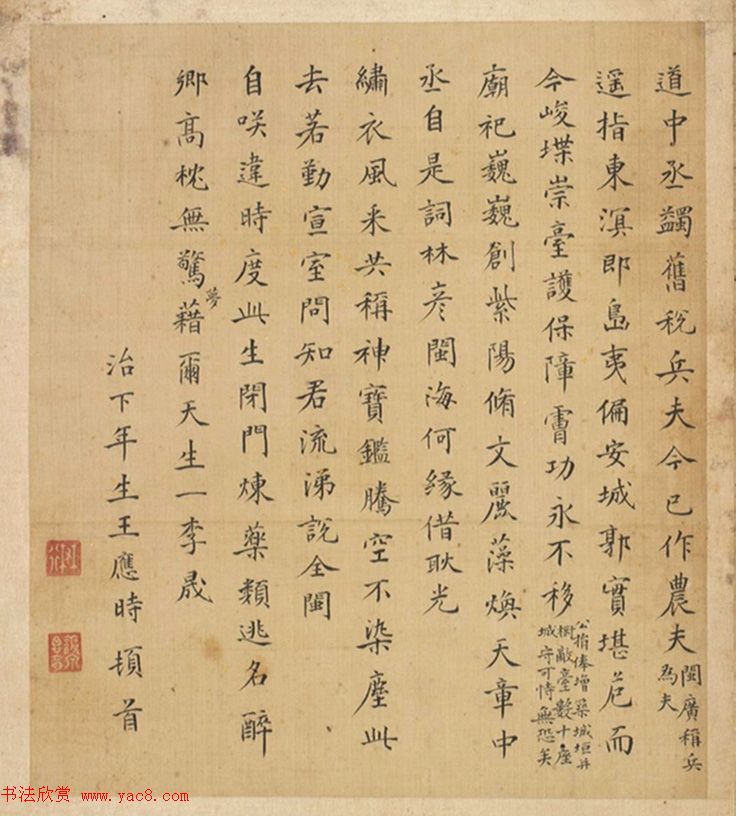 道中丞蠲舊稅兵夫今已作農夫閩廣稱兵為夫
遥指東溟即島夷偏安城郭實堪危而
今峻堞崇臺護保障雷功永不移公捐俸增築城垣并樹敵臺數十座城守可恃無恐矣
廟祀巍巍創紫陽脩文麗藻煥天章中
丞自是詞林彦閩海何緣借耿光
繡衣風采共稱神寶鑑騰空不染塵此
去若勤宣室問知君流涕說全閩
自咲違時度此生閉門煉藥類逃名醉
鄉髙枕無驚夢藉爾天生一李晟
治下年生王應時頓首
书法欣赏 www.yac8.com